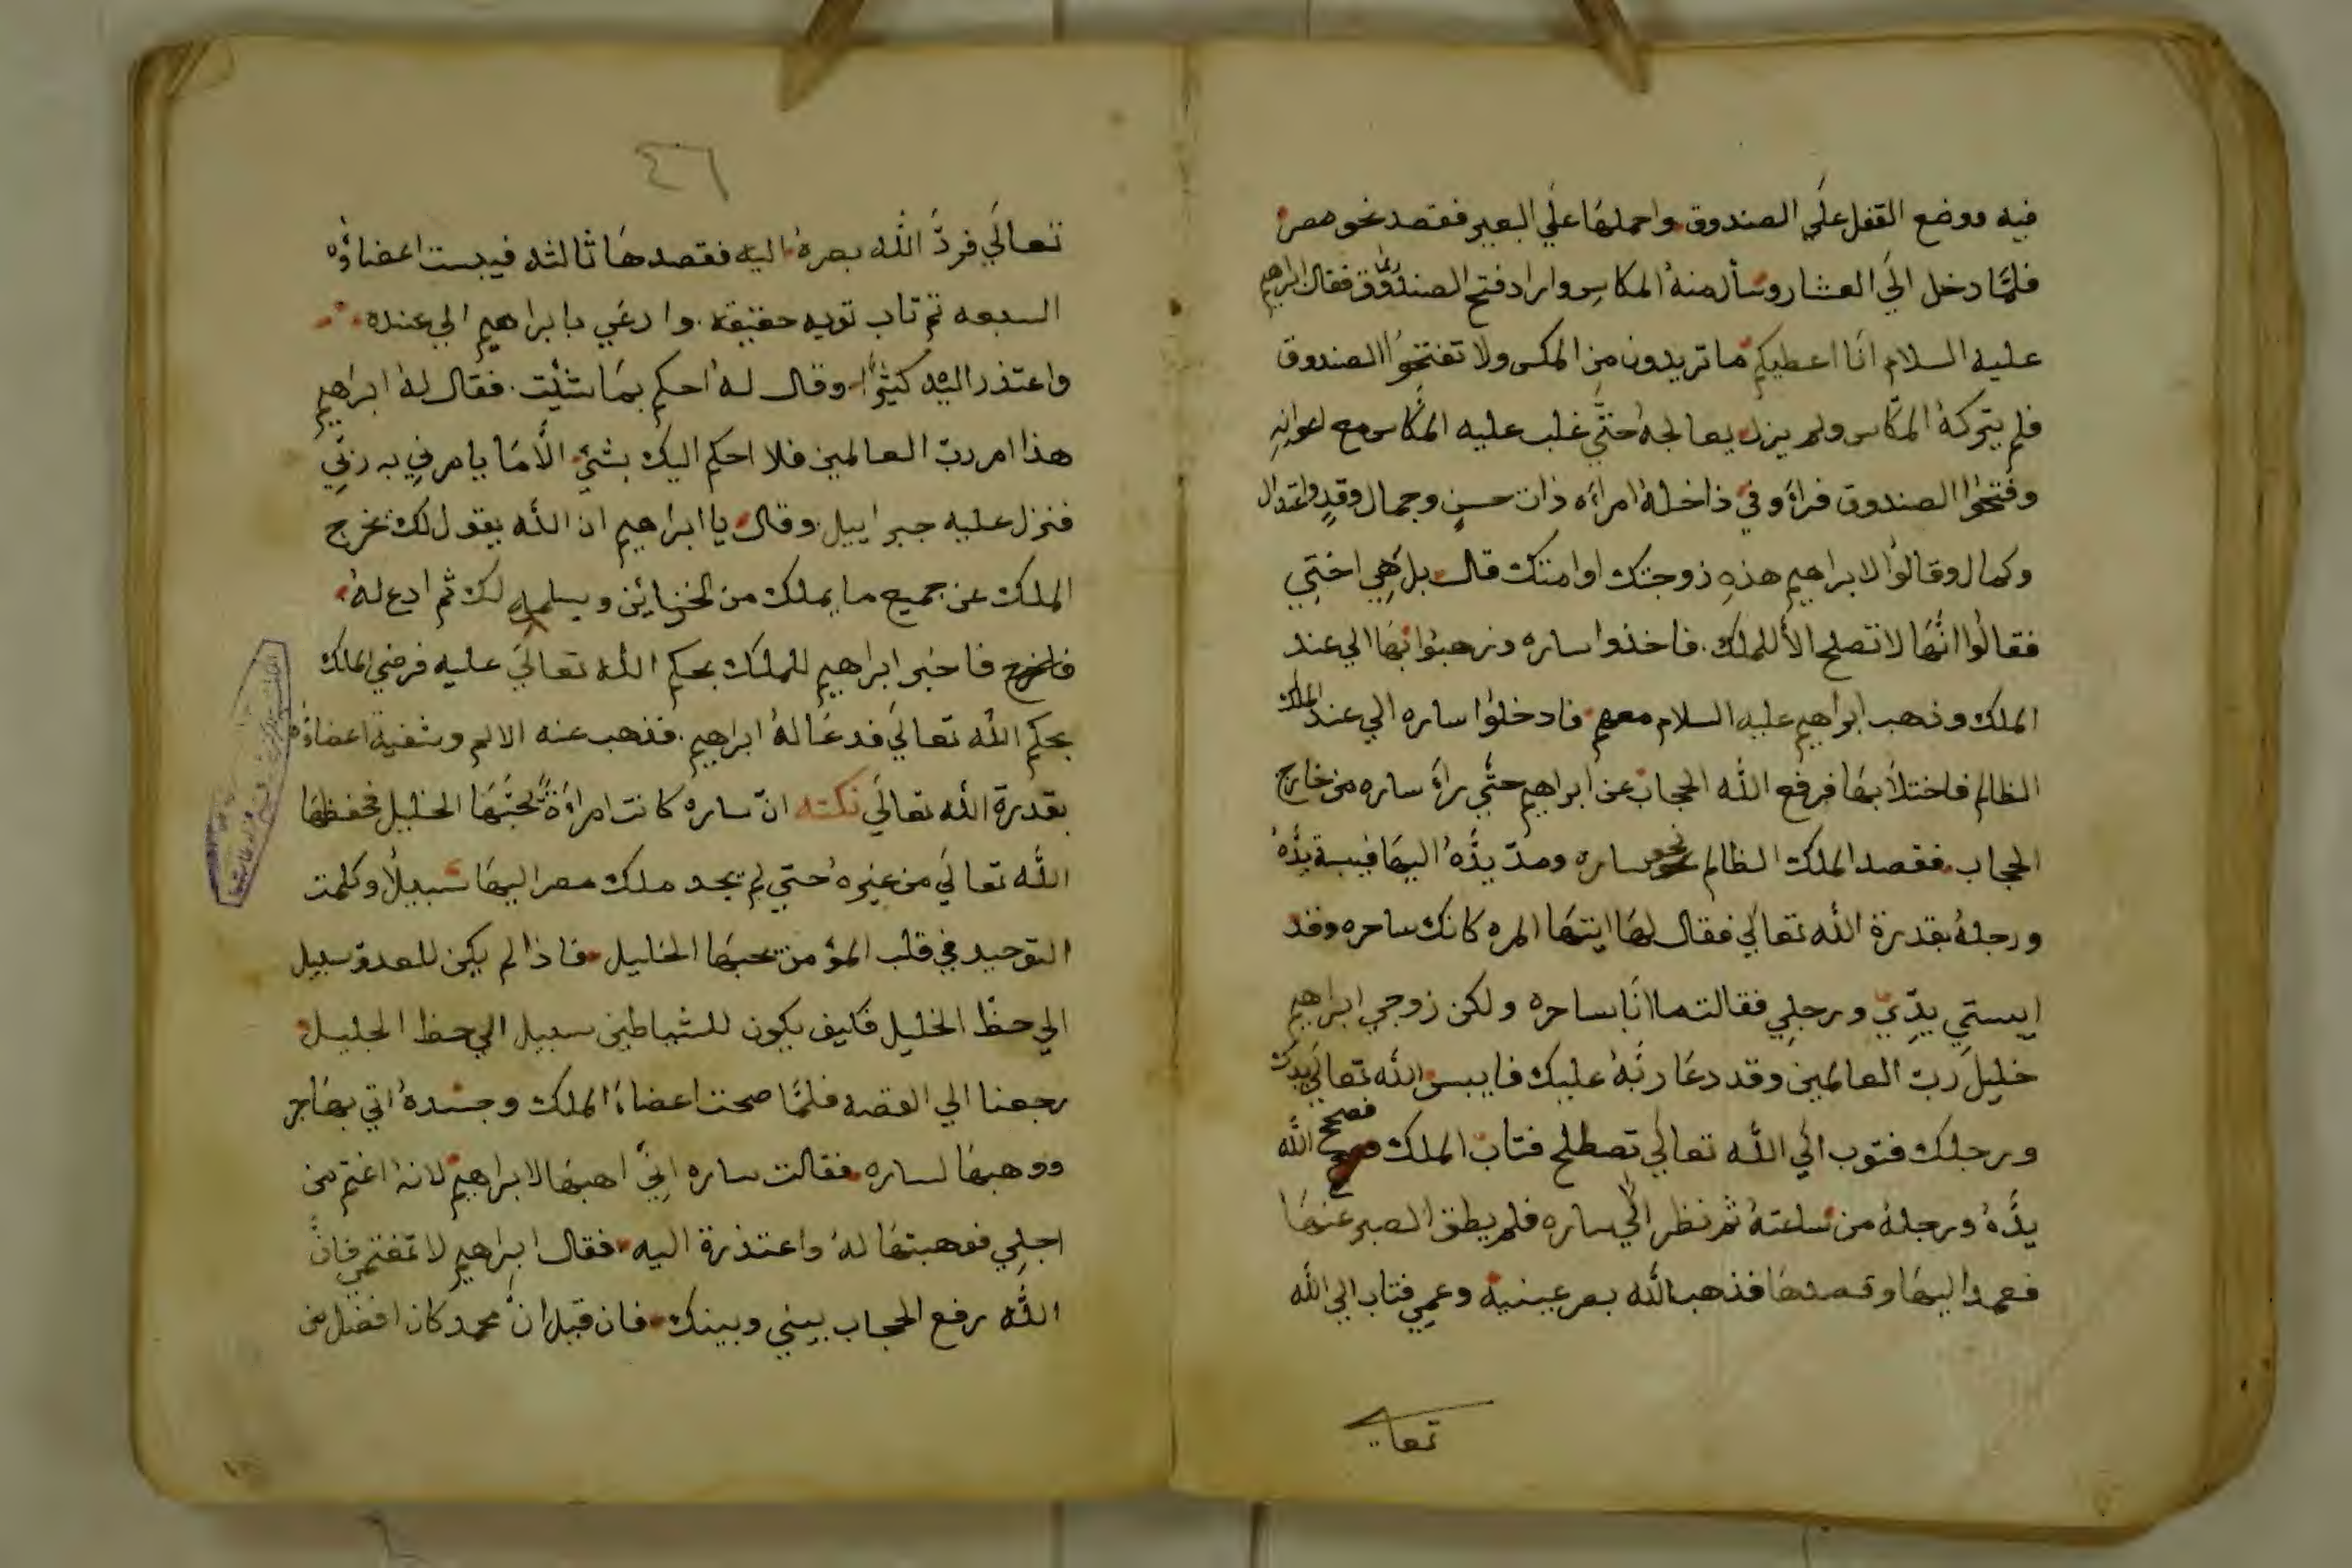 فيه ووضع القفل علي الصندوق واحملها علي البعير فقصد نحو مصر
فلمّا دخل الَي العشار وسأل منهُ المكاس واراد فتح الصندوق فقال ابراهيم
عليه السلام انَا اعطيكم ما تريدون من المكس ولا تفتحوُا الصندوق
فلم يتركهُ المكّاس ولم يزل يعالجهُ حتَّي غلب عليه المكاس مع اعوانِهِ
وفتحوُا الصندوق فراَو في ذاخلهُ امراَه ذات حسنٍ وجمال وقدٍ واعتدال
وكمال وقالوُا لابراهيم هذهِ زوجتك او امتك قال بل هَِي اختِي
فقالوُا انَّهَا لا تصلح الاَّ للملك. فاخذوا ساره وذهبوُا بِهَا الي عند
الملك وذهب ابراهيم عليه السلام معهم فادخلوُا ساره الي عند الملك
الظالم فاختلاَ بهَا فرفع اللَّه الحجاب عن ابراهيم حتَّي راَءَ ساره من خارج
الحجاب فقصد الملك الظالم نحو ساره ومدّ يدَّهُ اليهَا فيبسة يدَّهُ
ورجلهُ بقدرة اللَّه تعالَي فقال لهَا ايتهَا المره كانك ساحره وقد
ايبستي يدِّيّ ورجلِي فقالت ما انَا بساحره ولكن زوجي ابراهيم
خليل ربّ العالمين وقد دعَا ربَّهُ عليك فايبس اللَّه تعالَي يدك
ورجلك فتوب الَي اللَّه تعالَي تصطلح فتاب الملك فصحح اللَّه
يدَّهُ ورجلهُ من ساعتهُ ثم نظر الَي ساره فلم يطق الصبر عنهَا
فعمد اليهَا وقصدهَا فذهب اللَّه بصر عينيه وعمِي فتاب الي اللَّه
تعالي
٤٦
تعالَي فردَّ اللَّه بصرهُ اليه فقصدهَا ثالثه فيبست اعضاؤُه
السبعه ثم تاب توبه حقيقة. وادعَي بابراهيم الي عنده
واعتذر اليه كثيرًا وقال لهُ احكم بمَا شئِت. فقال لهُ ابراهيم
هذا امر ربّ العالمين فلا احكم اليك بشئٍ الاَّ مَا يامرنِي به ربِّي
فنزل عليه جبراييل. وقال يا ابراهيم ان اللَّه يقول لك تخرج
الملك عن جميع ما يملك من الخزاين ويسلمه لك ثم ادع لهُ
فاخبر ابراهيم للملك بحكم اللَّه تعالَي عليه فرضي الملك
بحكم اللَّه تعالَي فدعَا لهُ ابراهيم. فذهب عنه الالم وشفية اعضاؤُه
بقدرة اللَّه تعالَي نكته انّ ساره كانت امراَةً يحبّهَا الخليل فحفظهَا
اللَّه تعالَي من غيره حتي لم يجد ملك مصر اليهَا سبيلاً وكلمت
التوحيد في قلب المؤمن يحبهَا الخليل فاذا لم يكن للعدو سبيل
الي حظّ الخليل فكيف يكون للشياطين سبيل الي حظ الجليل
رجعنا الي القصه فلمَّا صحت اعضاءُ الملك وجسدهُ اتي بهَاجر
ووهبهَا لساره فقالت ساره انِّي اهبهَا لابراهيم لانهُ اغتم من
اجلِي فوهبتهَا لهُ واعتذرة اليه فقال ابراهيم لا تغتمي فانَّ
اللَّه رفع الحجاب بيني وبينك فان قيل انَّ محمد كان افضل من